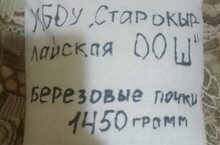 МБОУ „Старокыр
лайская ООШ"
Березовые почки
1450 грамм